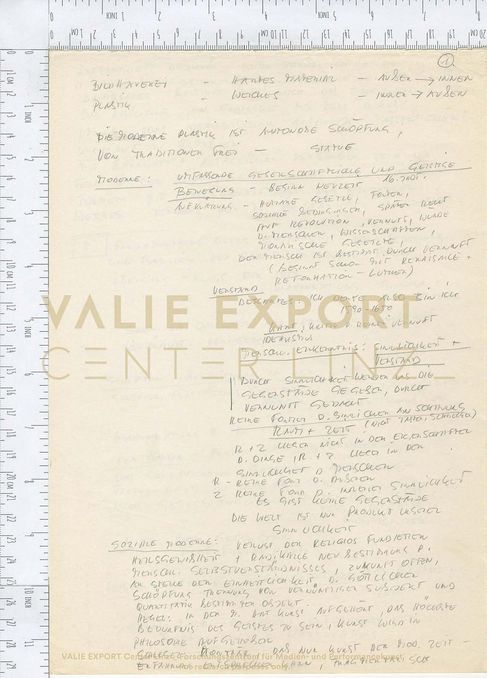 ①
BILDHAUEREI - HARTES MATERIAL - AUßEN → INNEN
PLASTIK - WEICHES - INNEN → AUßEN
DIE MODERNE PLASTIK IST AUTONOME SCHÖPFUNG,
VON TRADITIONEN FREI - STATUE
MODERNE: UMFASSENDE GESELLSCHAFTLICHE UND GEISTIGE
BEWEGUNG - BEGINN NEUZEIT 16. JHDT.
AUFKLÄRUNG - HUMANE GESETZE,
SOZIALE BEDINGUNGEN, SPÄTER RECHT
AUF REVOLUTION, VERNUNFT, WÜRDE
D. MENSCHEN, WISSENSCHAFTEN,
GESETZE,
DER MENSCH IST BESTIMMT DURCH VERNUNFT
(BEGINNT SCHON MIT RENAISSANCE +
REFORMATION - LUTHER)
VERSTAND
DESCARTES - ICH DENKE ALSO BIN ICH
1590-1650
KANT, KRITIK D. REINEN VERNUNFT
IDEALISMUS
MENSCHL. ERKENNTNIS: SINNLICHKEIT +
VERSTAND
DURCH SINNLICHKEIT WERDEN UNS DIE
GEGENSTÄNDE GEGEBEN, DURCH
VERNUNFT GEDACHT
REINE FORMEN D. SINNLICHEN ANSCHAUUNG
RAUM + ZEIT
R + Z LIEGEN NICHT IN DEN EIGENSCHAFTEN
D. DINGE, R + Z LIEGEN IN DER
SINNLICHKEIT D. MENSCHEN
R - REINE FORM D. ÄUßEREN
Z REINE FORM D. INNEREN SINNLICHKEIT
ES GIBT KEINE GEGENSTÄNDE
DIE WELT IST NUR PRODUKT UNSERER
SINNLICHKEIT
SOZIALE MODERNE: VERLUST DER RELIGIÖS FUNDIERTEN
HEILSGEWIßHEIT + RADIKALE NEUBESTIMMUNG D.
MENSCHL. SELBSTVERSTÄNDNISSES, ZUKUNFT OFFEN,
AN STELLE DER EINHEITLICHKEIT D. GÖTTLICHEN
SCHÖPFUNG TRENNUNG VON VERNÜNFTIGEM SUBJEKT UND
QUANTITATIV BESTIMMTEN OBJEKT.
HEGEL: IN DER KUNST DAS HÖCHSTE
BEDÜRFNIS DES GEISTES ZU SEIN, KUNST WIRD IN
PHILOSOPHIE AUFGEHOBEN
DAS NUR KUNST DER MOD. ZEIT -
ERFAHRUNG KANN,
VALIE EXPORT
CENTER LINZ_
VALIE EXPORT Center Linz, Forschungszentrum für Medien- und Performancekunst